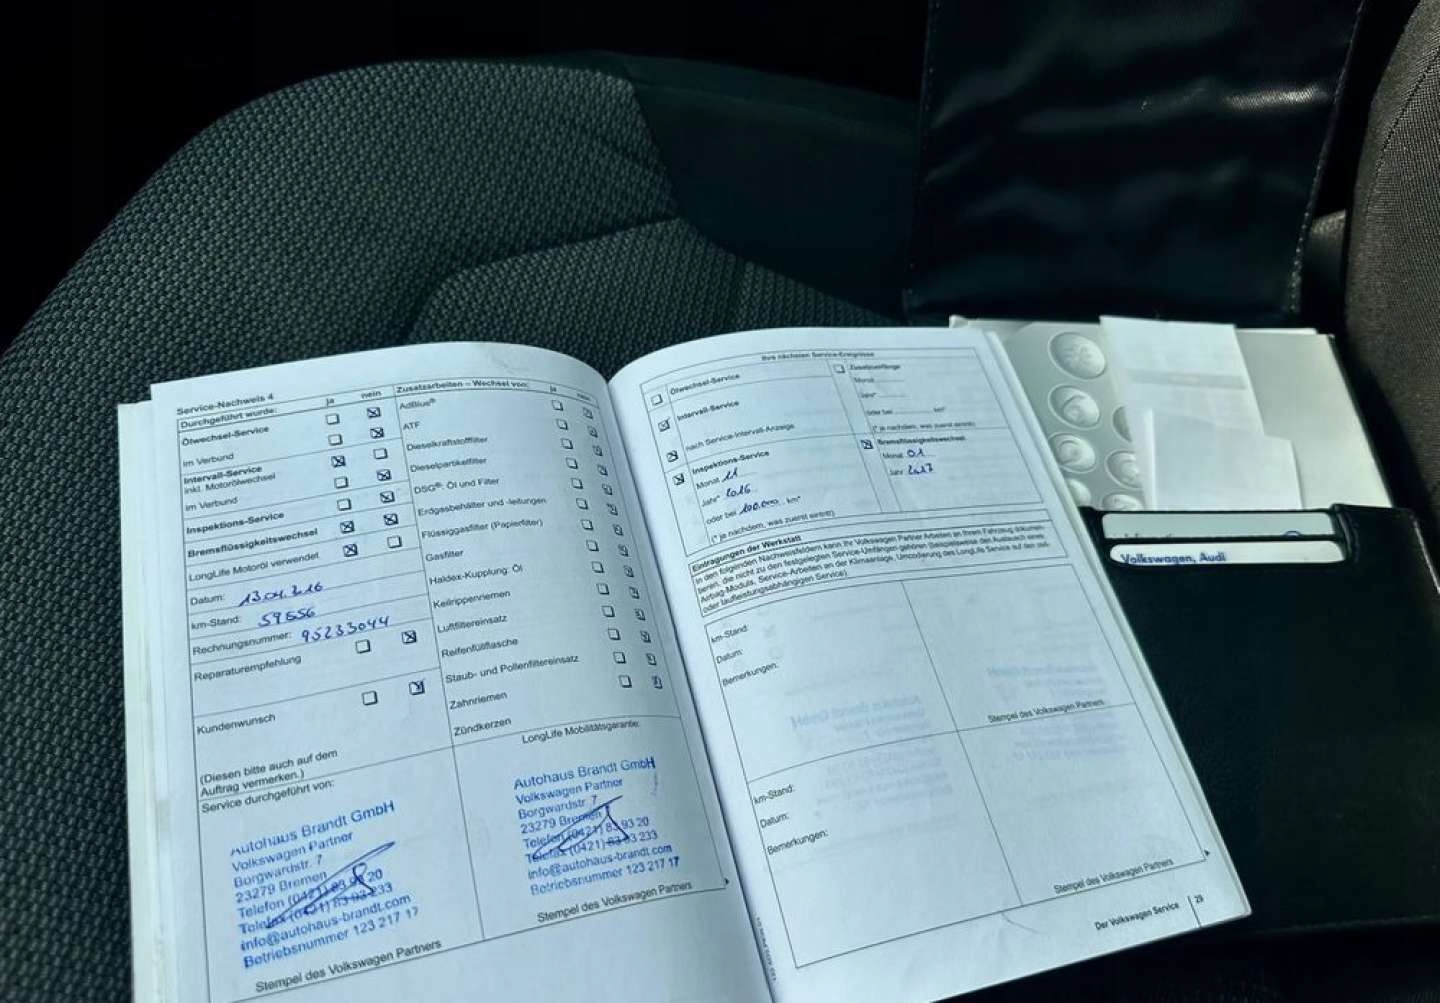 Service-Nachweis 4
Durchgeführt wurde:
ja nein
Ölwechsel-Service
im Verbund
Intervall-Service
inkl. Motorölwechsel
im Verbund
Inspektions-Service
Bremsflüssigkeitswechsel
LongLife Motoröl verwendet
Datum:
km-Stand: 59556
Rechnungsnummer: 95233044
Reparaturempfehlung
Kundenwunsch
(Diesen bitte auch auf dem
Auftrag vermerken.)
Service durchgeführt von:
Autohaus Brandt GmbH
Volkswagen Partner
Borgwardstr. 7
23279 Bremen
Telefon (0421) 83 93 20
Telefax (0421) 83 93 233
info@autohaus-brandt.com
Betriebsnummer 123 217 17
Stempel des Volkswagen Partners
Zusatzarbeiten – Wechsel von:
ja nein
AdBlue®
ATF
Dieselkraftstofffilter
Dieselpartikelfilter
DSG®: Öl und Filter
Erdgasbehälter und -leitungen
Flüssiggasfilter (Papierfilter)
Gasfilter
Haldex-Kupplung: Öl
Keilrippenriemen
Luftfiltereinsatz
Reifenfüllflasche
Staub- und Pollenfiltereinsatz
Zahnriemen
Zündkerzen
LongLife Mobilitätsgarantie:
Autohaus Brandt GmbH
Volkswagen Partner
Borgwardstr. 7
23279 Bremen
Telefon (0421) 83 93 20
Telefax (0421) 83 93 233
info@autohaus-brandt.com
Betriebsnummer 123 217 17
Stempel des Volkswagen Partners
Ihre nächsten Service-Ereignisse
Ölwechsel-Service
Intervall-Service
nach Service-Intervall-Anzeige
Inspektions-Service
Monat 11
Jahr* 2016
oder bei 100.000 km*
(* je nachdem, was zuerst eintritt)
Zusatzumfänge
Monat
Jahr*
oder bei km*
(* je nachdem, was zuerst eintritt)
Bremsflüssigkeitswechsel
Monat 01
Jahr 2017
Eintragungen der Werkstatt
In den folgenden Nachweisfeldern kann Ihr Volkswagen Partner Arbeiten an Ihrem Fahrzeug dokumen-
tieren, die nicht zu den festgelegten Service-Umfängen gehören (beispielsweise den Austausch eines
Airbag-Moduls, Service-Arbeiten an der Klimaanlage, Umcodierung des LongLife Service auf den zeit-
oder laufleistungsabhängigen Service).
km-Stand:
Datum:
Bemerkungen:
Stempel des Volkswagen Partners
km-Stand:
Datum:
Bemerkungen:
Stempel des Volkswagen Partners
Der Volkswagen Service | 29
Volkswagen, Audi